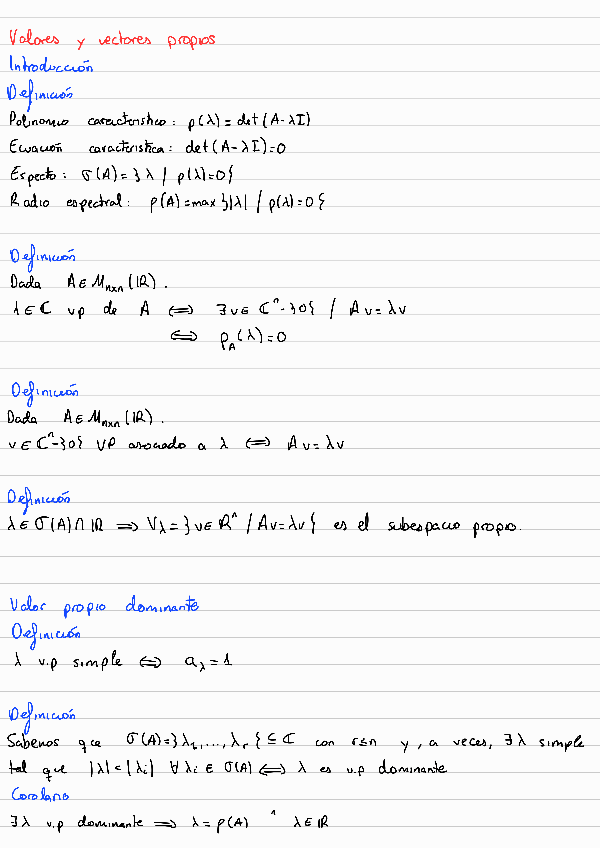 Valores y vectores propios
Introducción
Definición
Polinomio característico: p(λ)=det(A-λI)
Ecuación característica: det(A-λI)=0
Espectro: σ(A)={λ / p(λ)=0}
Radio espectral: ρ(A)=max{|λ| / p(λ)=0}
Definición
Dada A∈Mₙₓₙ(ℝ).
λ∈ℂ vp de A ⟺ ∃v∈ℂⁿ-{0} / Av=λv
⟺ p_A(λ)=0
Definición
Dada A∈Mₙₓₙ(ℝ).
v∈ℂⁿ-{0} VP asociado a λ ⟺ Av=λv
Definición
λ∈σ(A)∩ℝ ⟹ V_λ={v∈ℝⁿ / Av=λv} es el subespacio propio.
Valor propio dominante
Definición
λ v.p simple ⟺ a_λ=1
Definición
Sabemos que σ(A)={λ₁,...,λᵣ}⊆ℂ con r≤n y, a veces, ∃λ simple
tal que |λ|<|λᵢ| ∀λᵢ∈σ(A) ⟺ λ es v.p dominante
Corolario
∃λ v.p dominante ⟹ λ=ρ(A) ^ λ∈ℝ